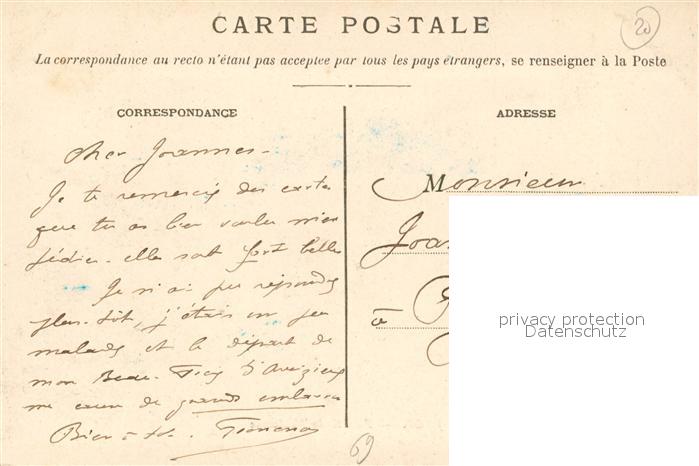 20
CARTE POSTALE
La correspondance au recto n'étant pas acceptée par tous les pays étrangers, se renseigner à la Poste
CORRESPONDANCE
ADRESSE
Cher Joannes -
Je te remercie des cartes
que tu as bien voulu m'ex
pédier. elles sont fort belles
Je n'ai pu répondre
plus tôt, j'étais un peu
malade et le départ de
mon Beau-
me cause de grands embarras
Bien à toi.
Monsieur
Joan
à
69
privacy protection
Datenschutz